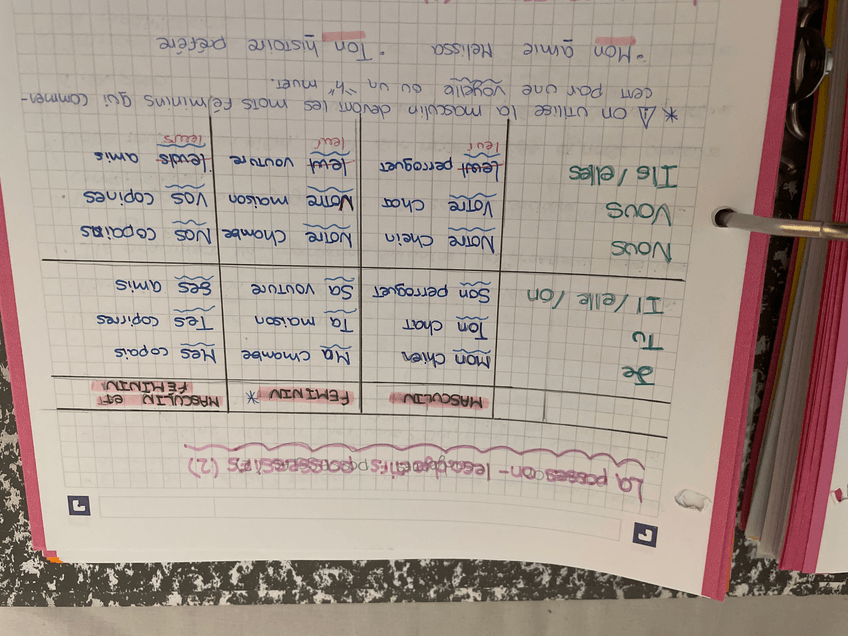 La possession - les adjectifs possessifs (2)
MASCULIN FEMININ * MASCULIN ET FEMININ
Je mon chien Ma chambe Mes copais
Tu Ton chat Ta maison Tes copines
Il / elle / on Son perroquet Sa vouture Ses amis
Nous Notre chein Notre chambe Nos copains
Vous Votre chat Votre maison Vos copines
Ils / elles Leur perroquet leur vouture leurs amis
leur leur leurs
* ⚠ on utilise la masculin devant les mots féminins qui commen-
cent par une voyelle ou un "h" muet.
• Mon amie Melissa • Ton histoire préférée